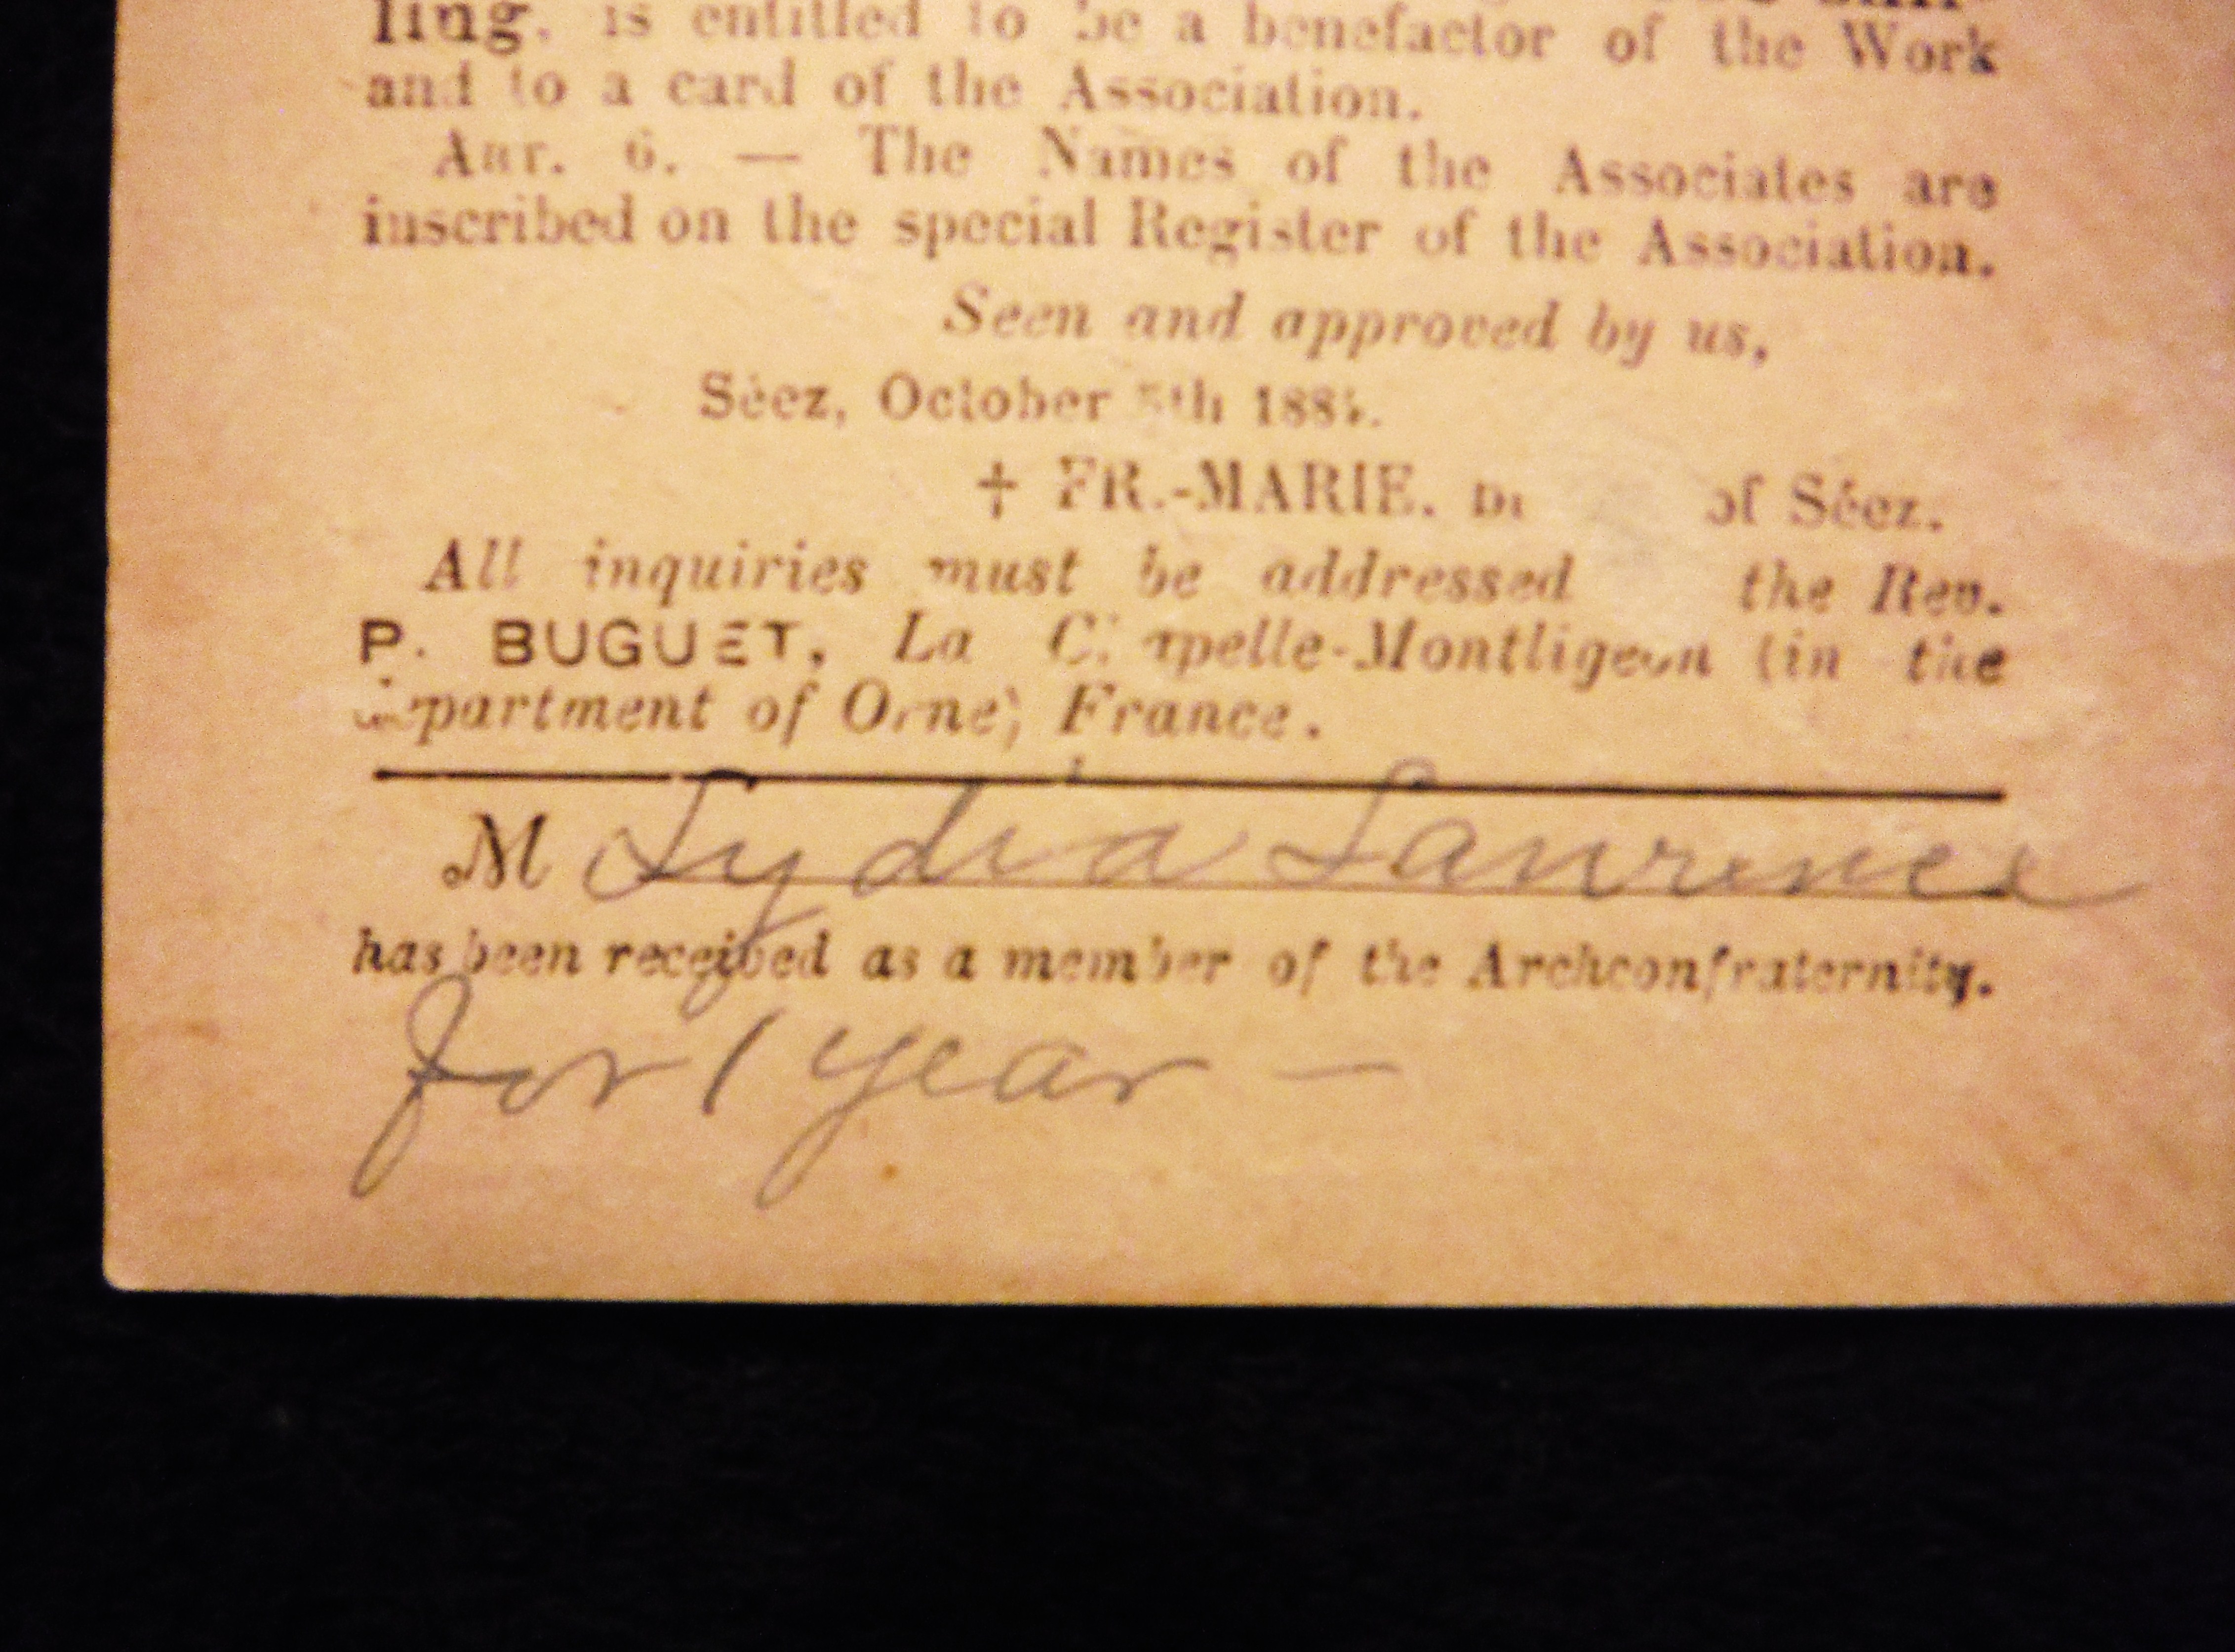 ling, is entitled to be a benefactor of the Work
and to a card of the Association.
ART. 6. — The Names of the Associates are
inscribed on the special Register of the Association.
Seen and approved by us,
Séez, October 5th
† FR.-MARIE. of Séez.
All inquiries must be addressed the Rev.
P. BUGUET, La Chapelle-Montligeon (in the
department of Orne) France.
M Lydia Lawrence
has been received as a member of the Archconfraternity.
for 1 year —